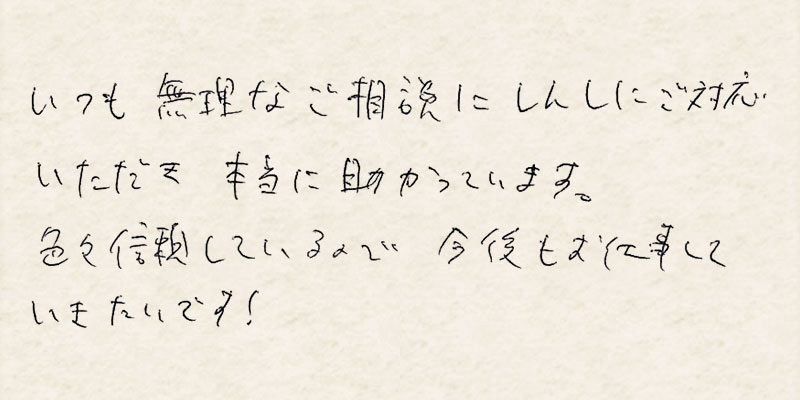 いつも 無理なご相談に しんしにご対応
いただき 本当に助かっています。
色々信頼しているので 今後もお仕事して
いきたいです!